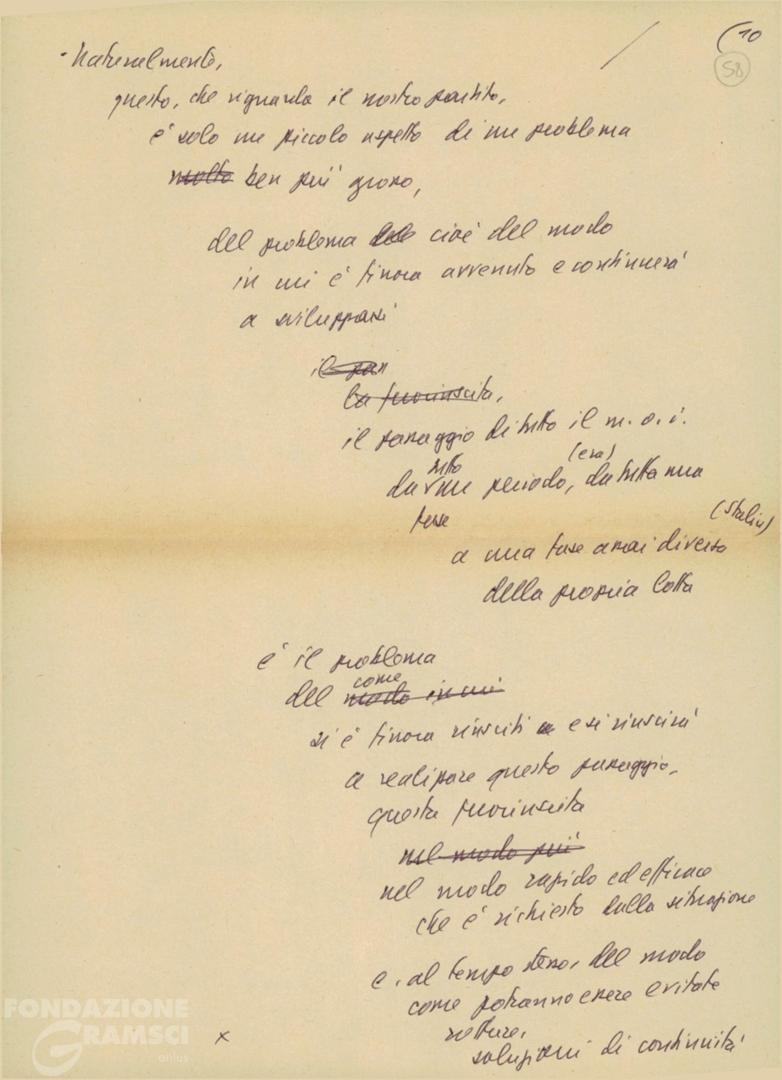 (10
58
- Naturalmente,
questo, che riguarda il nostro partito,
è solo un piccolo aspetto di un problema
molto ben più grosso,
del problema del cioè del modo
in cui è finora avvenuto e continuerà
a svilupparsi
il pan
la fuoriuscita,
il passaggio di tutto il m. o. i.
tutto (era)
da un periodo, da tutta una
fase (Stalin)
a una fase assai diversa
della propria lotta
è il problema
come
del modo in cui
si è finora riusciti e si riuscirà
a realizzare questo passaggio,
questa fuoriuscita
nel modo più
nel modo rapido ed efficace
che è richiesto dalla situazione
e, al tempo stesso, del modo
come potranno essere evitate
rotture,
soluzioni di continuità
x
FONDAZIONE
GRAMSCI
onlus